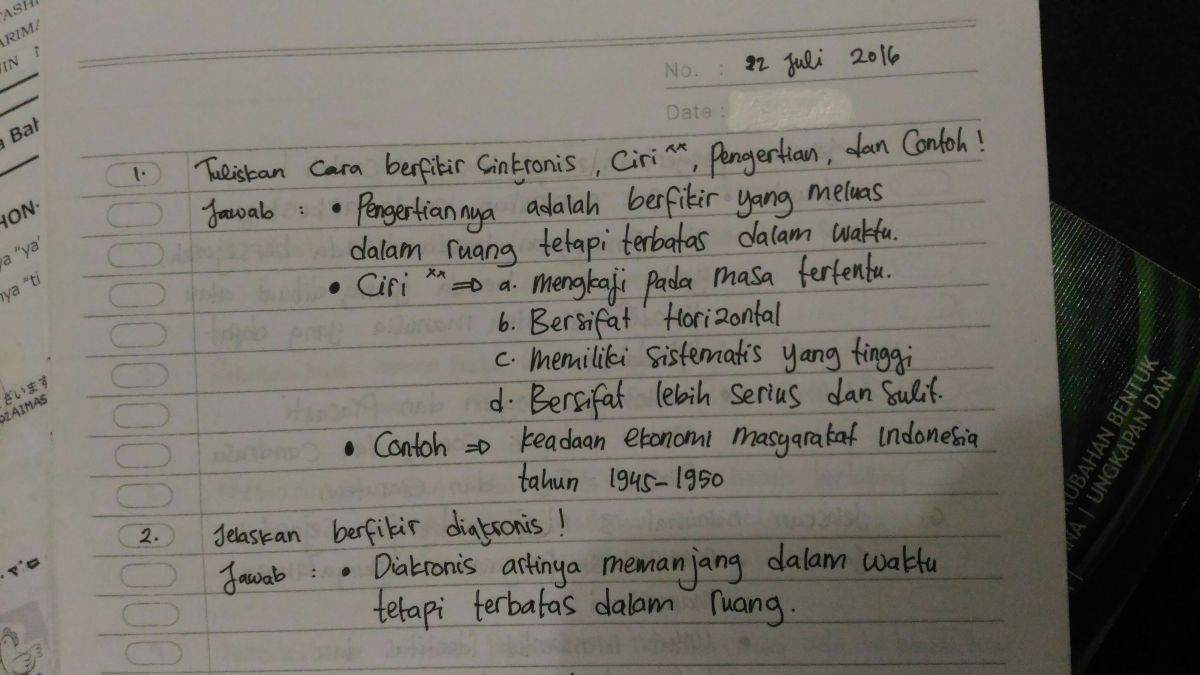 TASH
ARIMA
JIN
a Bah
HON.
ya "ya"
nya "ti
ざいます
OZAIMAS
No. : 22 Juli 2016
Date :
1. Tuliskan Cara berfikir Sinkronis, Ciri ˣˣ, Pengertian, dan Contoh!
Jawab : • Pengertiannya adalah berfikir yang meluas
dalam ruang tetapi terbatas dalam waktu.
• Ciri ˣˣ => a. mengkaji pada masa tertentu.
b. Bersifat Horizontal
c. memiliki sistematis yang tinggi
d. Bersifat lebih serius dan sulit.
• Contoh => keadaan ekonomi masyarakat Indonesia
tahun 1945-1950
2. Jelaskan berfikir diakronis!
Jawab : • Diakronis artinya memanjang dalam waktu
tetapi terbatas dalam ruang.
RUBAHAN BENTUK
NA | UNGKAPAN DAN